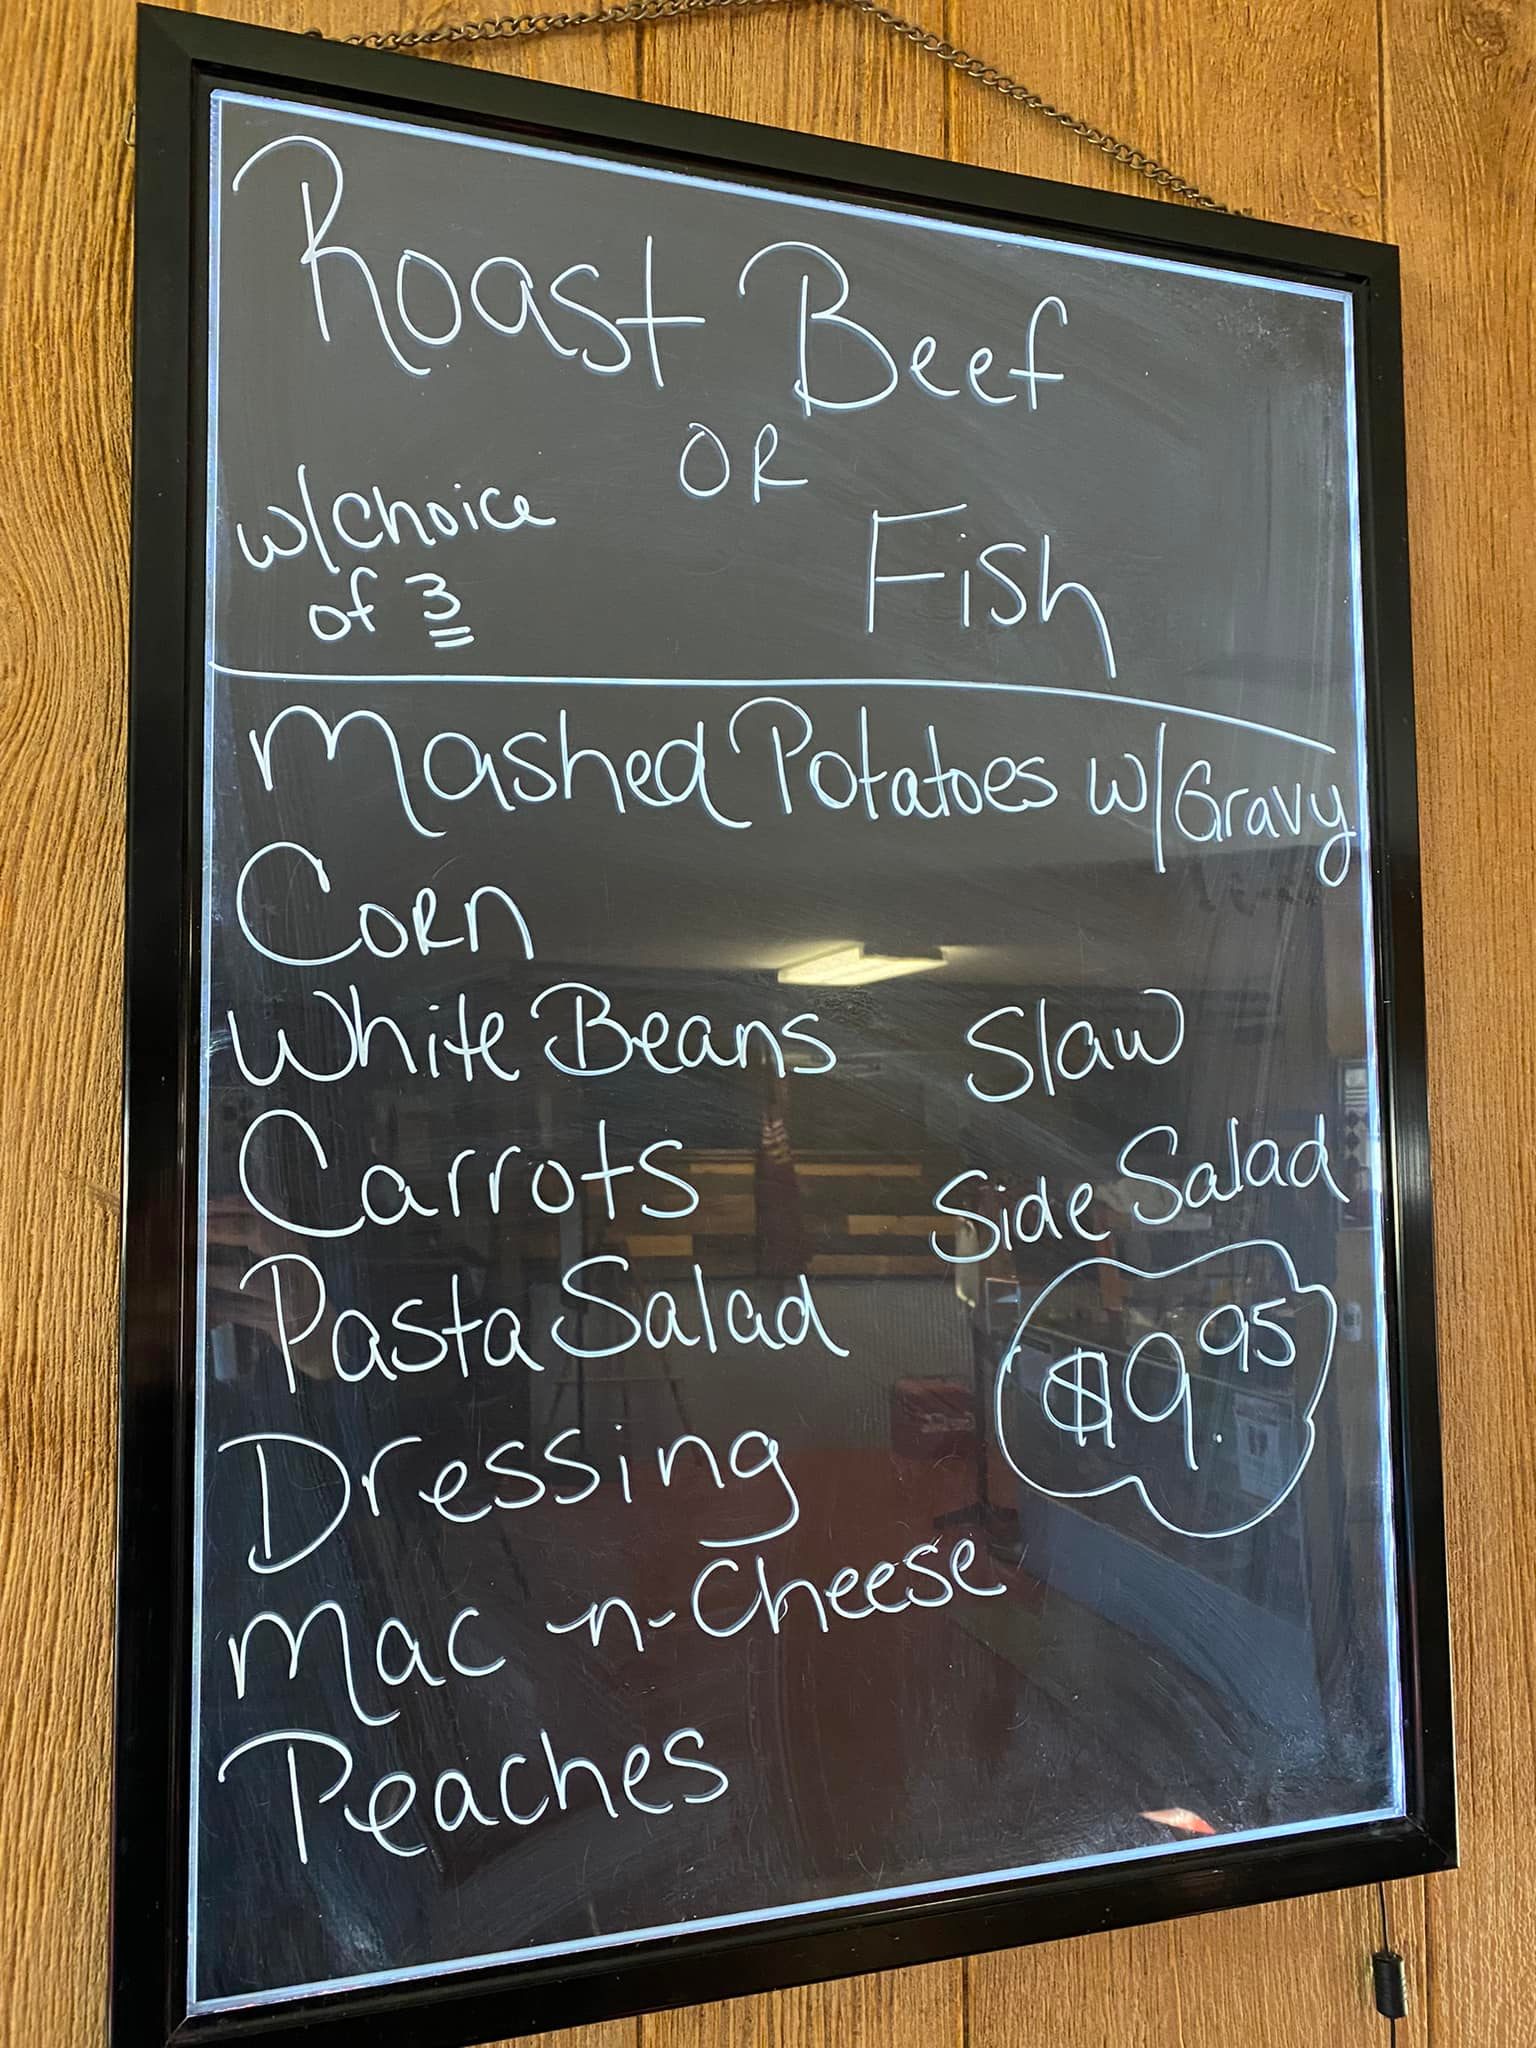 Roast Beef
OR
w/choice
of 3
Fish
Mashed Potatoes w/Gravy
Corn
White Beans
Carrots
Pasta Salad
Dressing
Mac -n-Cheese
Peaches
Slaw
Side Salad
$9.95